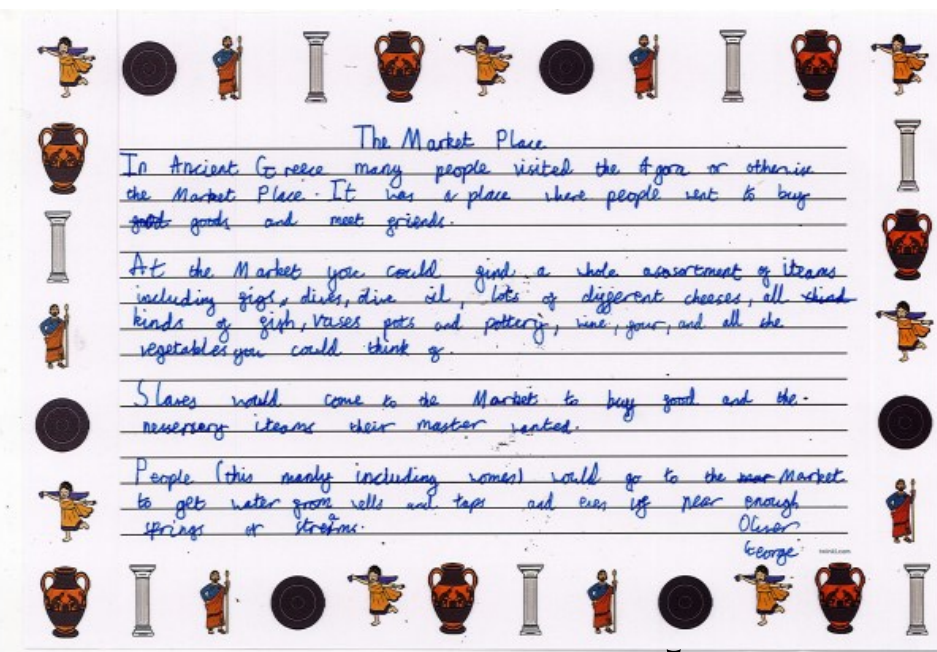 The Market Place
In Ancient Greece many people visited the Agora or otherwise
the Market Place. It was a place where people went to buy
goods and meet friends.
At the Market you could find a whole assortment of iteams
including figs, olives, olive oil, lots of different cheeses, all
kinds of fish, vases pots and pottery, wine, flour, and all the
vegetables you could think of.
Slaves would come to the Market to buy food and the
nessersary iteams their master wanted.
People (this manly including women) would go to the Market
to get water from wells and taps and even if near enough
springs or streams.
Oliver
George
twinkl.com